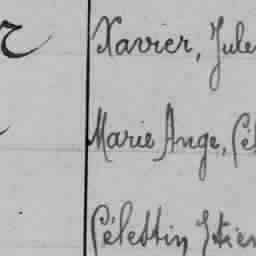 Xavier, Jule
Marie Ange, Cél
Célestin Etien